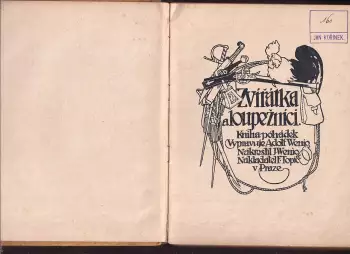 JAN KOŘÍNEK
Zvířátka
a loupežníci.
Kniha pohádek
Vypravuje Adolf Wenig
Nakreslil J. Wenig
Nakladatel F. Topič
v Praze